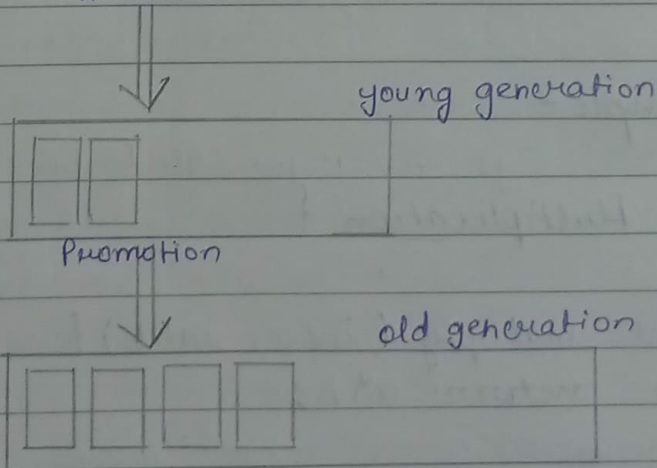 young generation
Promotion
old generation